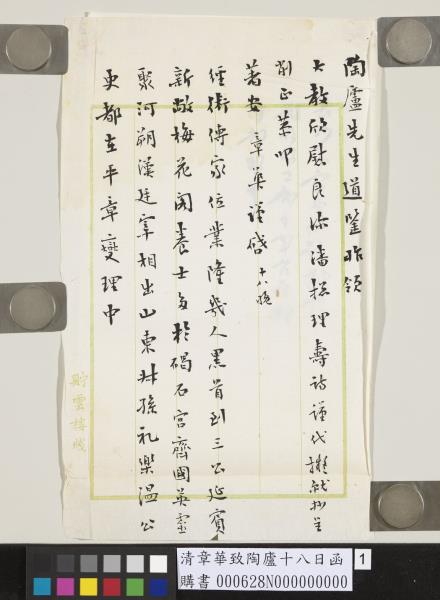 陶廬先生道鑒昨領
大教欣慰良深潘總理壽詩謹代擬就抄呈
削正葉叩
著安 章華謹啓 十八晚
經術傳家位業隆幾人黑首到三公延賓
新敞梅花閣養士多於碣石宮齊國英靈
聚河朔漢廷宰相出山東叔孫禮樂溫公
更都在平章變理中
貯雲樓牋
清章華致陶廬十八日函
購書 000628N000000000
1